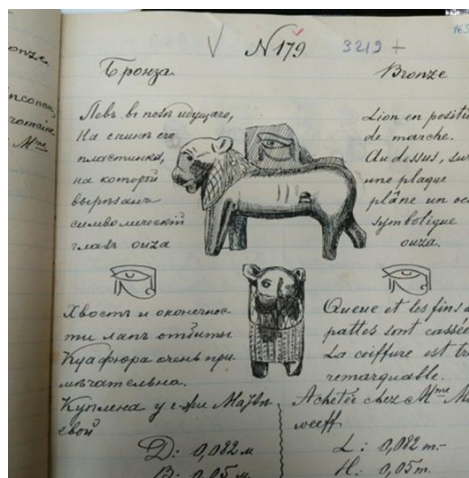 N 179 3219 +
Бронза
Левъ въ позѣ идущаго,
На спинѣ его
пластинка,
на которой
вырѣзанъ
символическій
глазъ ouza
Хвостъ и оконечнос-
ти лапъ отбиты
Куафюра очень при-
мѣчательна.
Куплена у г-жи
D: 0,082 м
В: 0,05 м
Bronze
Lion en positi
de marche.
Au dessus, sur
une plaque
plâne un oe
symbolique
ouza.
Queue et les fins d
pattes sont cassée
La coiffure est tr
remarquable.
Achetée chez Mme
L: 0,082 m.-
H: 0,05 m.